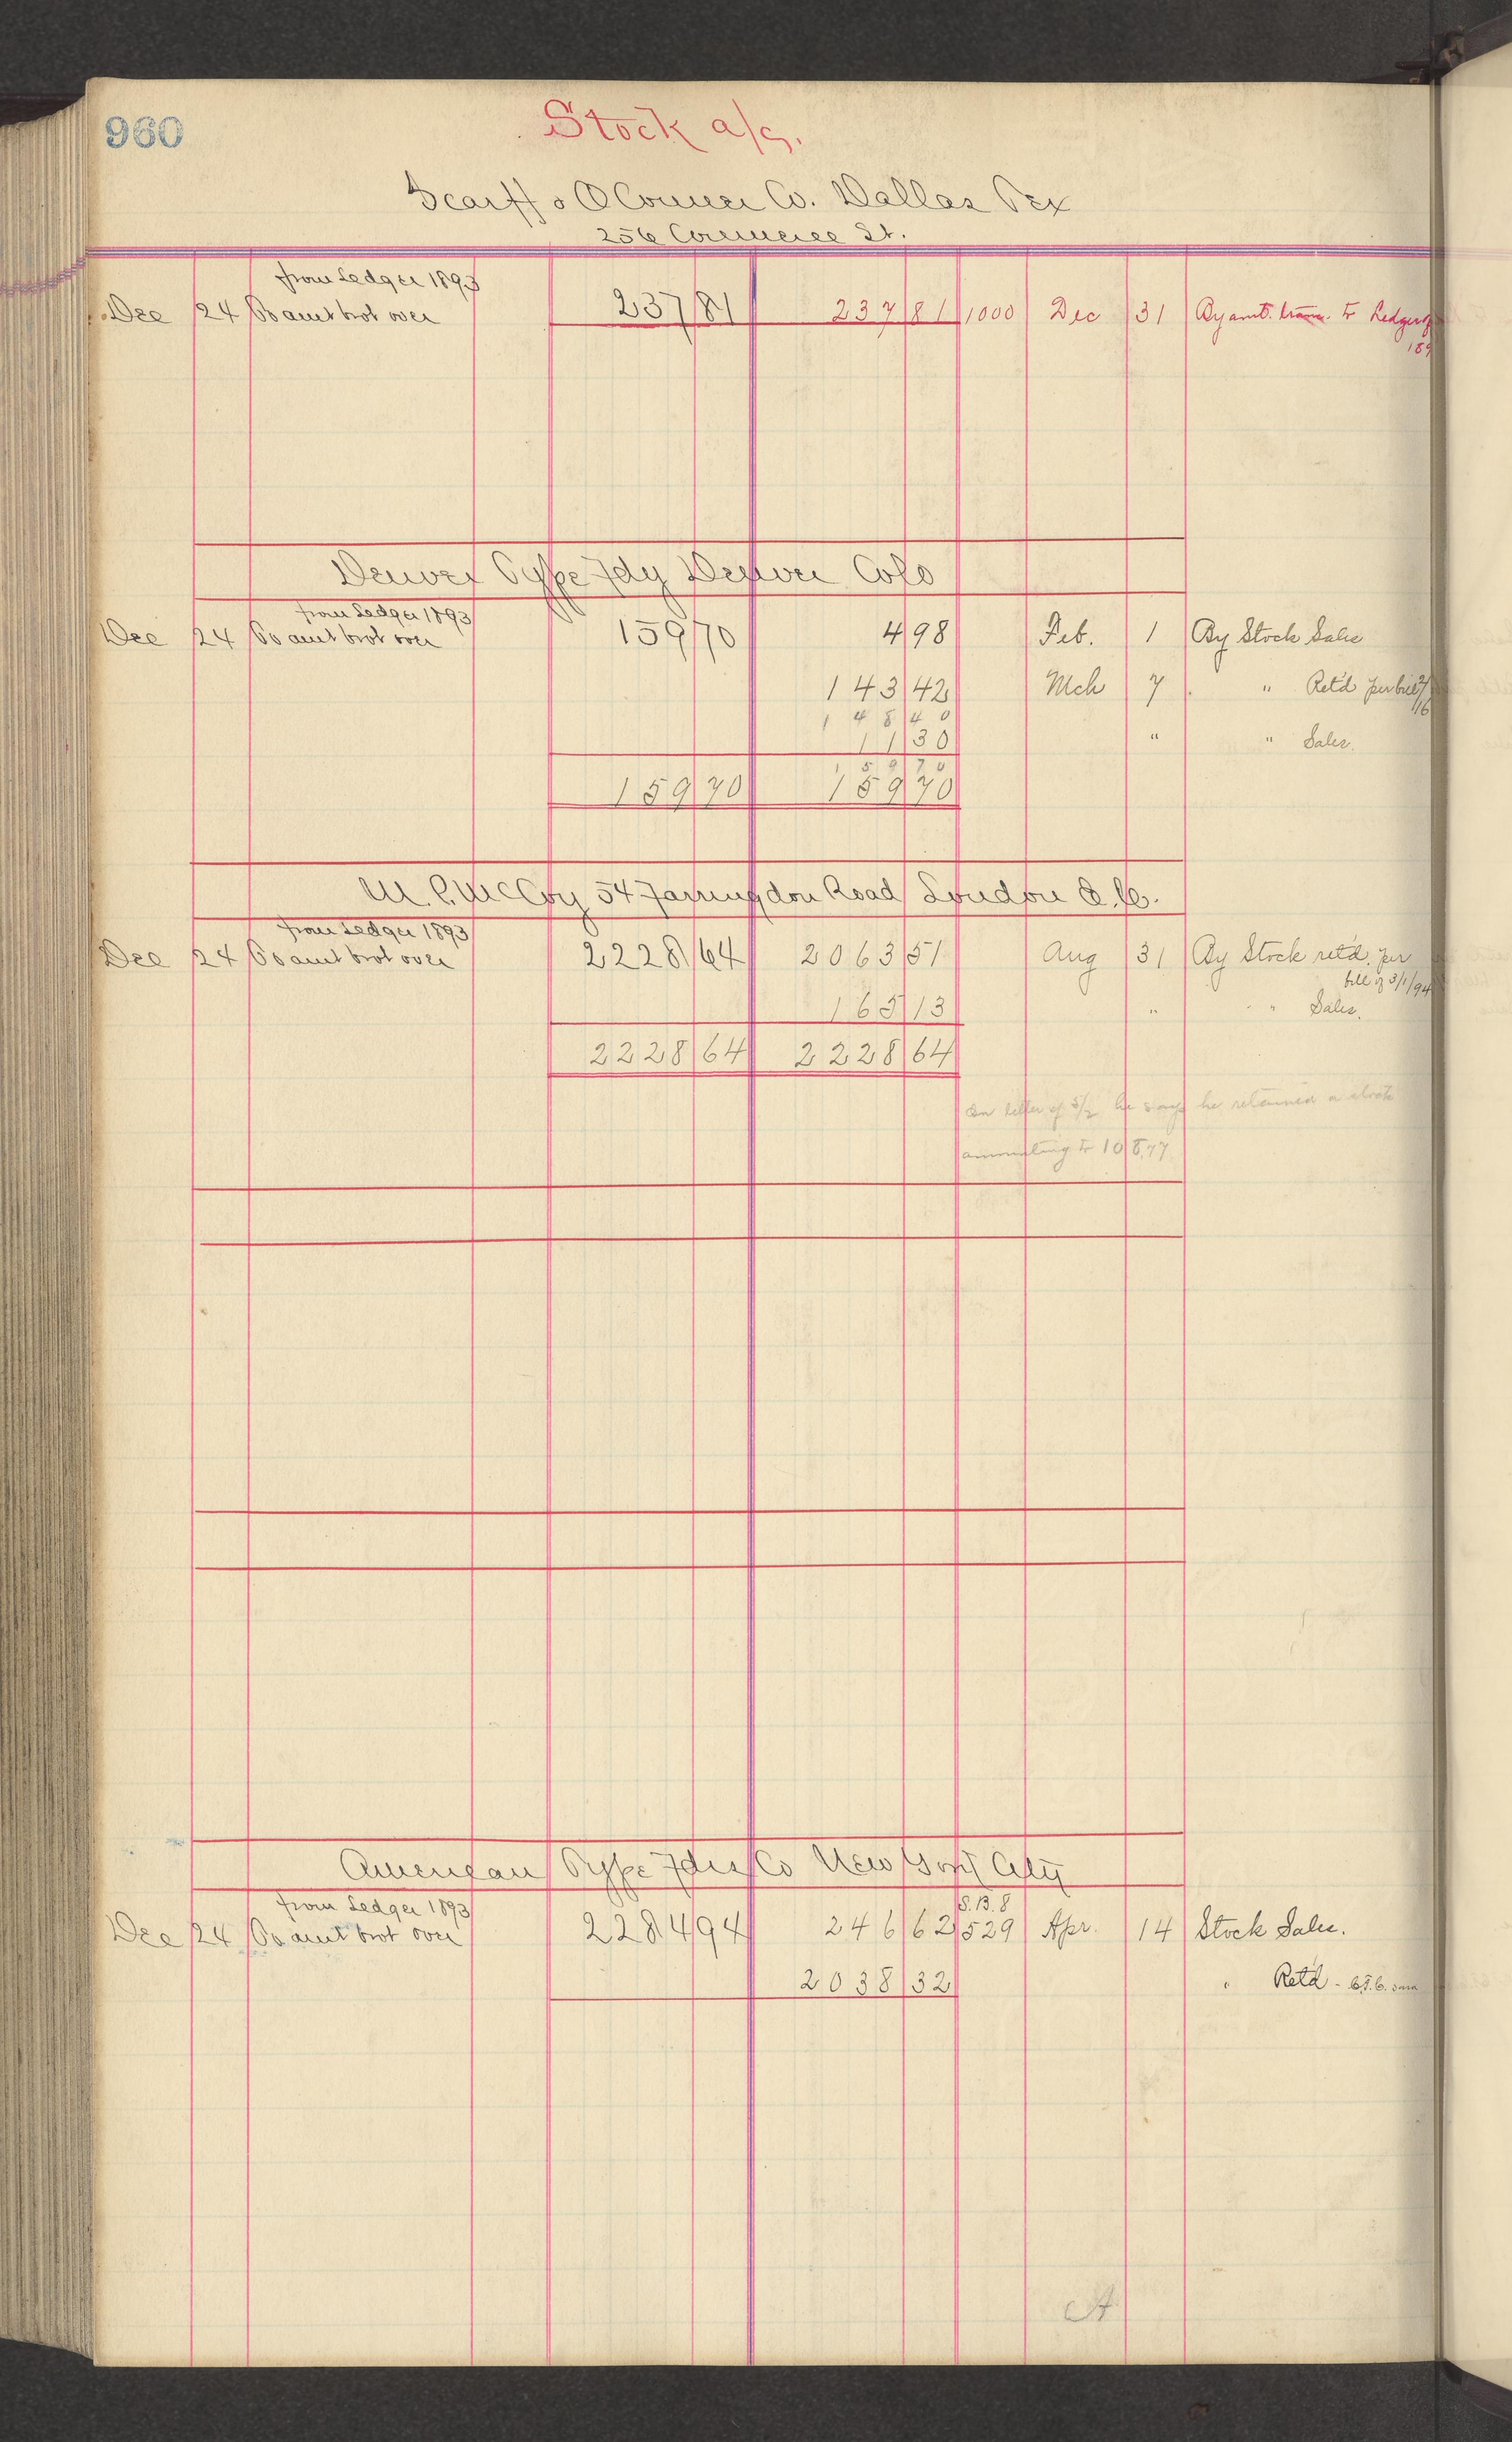 960
Stock a/c.
Scarff & O'Connor Co. Dallas Tex
256 Commerce St.
from Ledger 1893
Dec 24 To amt brot over 237 81 237 81 1000 Dec 31 By amt. trans. to Ledger of
189
Denver Type Fdy Denver Colo
from Ledger 1893
Dec 24 To amt brot over 159 70 4 98 Feb. 1 By Stock Sales
143 42 Mch 7 " Ret'd per bill
148 40
11 30 " " Sales.
159 70
159 70 159 70
M. P. McCoy 54 Farringdon Road London E.C.
from Ledger 1893
Dec 24 To amt brot over 2228 64 2063 51 Aug 31 By Stock retd. per
bill of 3/1/94
165 13 " " Sales.
2228 64 2228 64
In letter of 5/2 he says he retained a stock
amounting to 108.77
American Type Fdrs Co New York City
from Ledger 1893
S.B. 8
Dec 24 To amt brot over 2284 94 246 62 529 Apr. 14 Stock Sales.
2038 32 " Ret'd -
A